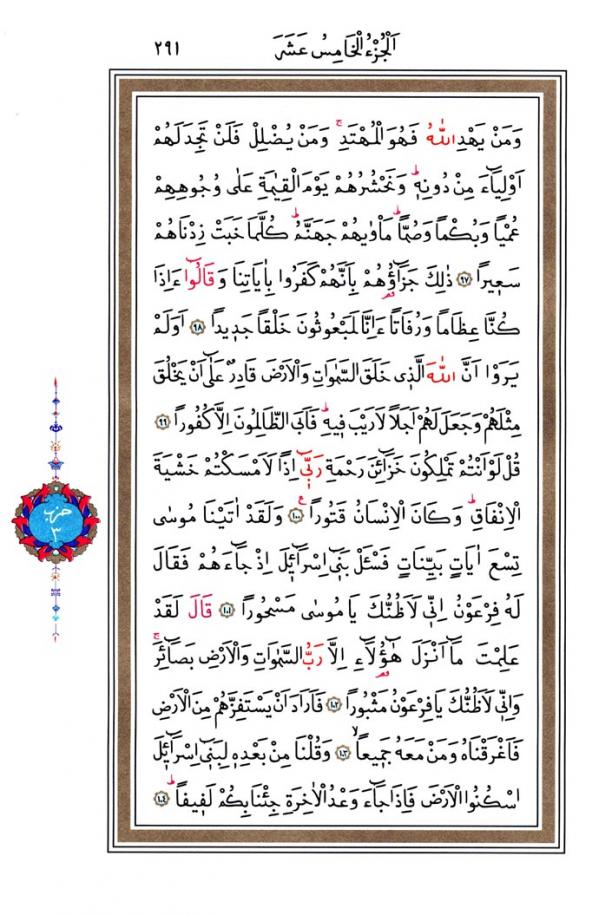 اَلْجُزْءُ الْخَامِسُ عَشَرَ ٢٩١
وَمَنْ يَهْدِ اللّٰهُ فَهُوَ الْمُهْتَدِۚ وَمَنْ يُضْلِلْ فَلَنْ تَجِدَ لَهُمْ
اَوْلِيَٓاءَ مِنْ دُونِه۪ۜ وَنَحْشُرُهُمْ يَوْمَ الْقِيٰمَةِ عَلٰى وُجُوهِهِمْ
عُمْياً وَبُكْماً وَصُماًّۜ مَأْوٰيهُمْ جَهَنَّمُۜ كُلَّمَا خَبَتْ زِدْنَاهُمْ
سَع۪يراً ﴿٩٧﴾ ذٰلِكَ جَزَٓاؤُ۬هُمْ بِاَنَّهُمْ كَفَرُوا بِاٰيَاتِنَا وَقَالُٓوا ءَاِذَا
كُنَّا عِظَاماً وَرُفَاتاً ءَاِنَّا لَمَبْعُوثُونَ خَلْقاً جَد۪يداً ﴿٩٨﴾ اَوَلَمْ
يَرَوْا اَنَّ اللّٰهَ الَّذ۪ي خَلَقَ السَّمٰوَاتِ وَالْاَرْضَ قَادِرٌ عَلٰٓى اَنْ يَخْلُقَ
مِثْلَهُمْ وَجَعَلَ لَهُمْ اَجَلاً لَا رَيْبَ ف۪يهِۜ فَاَبَى الظَّالِمُونَ اِلَّا كُفُوراً ﴿٩٩﴾
قُلْ لَوْ اَنْتُمْ تَمْلِكُونَ خَزَٓائِنَ رَحْمَةِ رَبّ۪ٓي اِذاً لَاَمْسَكْتُمْ خَشْيَةَ
الْاِنْفَاقِۜ وَكَانَ الْاِنْسَانُ قَتُوراً۟ ﴿١٠٠﴾ وَلَقَدْ اٰتَيْنَا مُوسٰى
تِسْعَ اٰيَاتٍ بَيِّنَاتٍ فَسْـَٔلْ بَن۪ٓي اِسْرَٓائ۪لَ اِذْ جَٓاءَهُمْ فَقَالَ
لَهُ فِرْعَوْنُ اِنّ۪ي لَاَظُنُّكَ يَا مُوسٰى مَسْحُوراً ﴿١٠١﴾ قَالَ لَقَدْ
حزب
٣
عَلِمْتَ مَٓا اَنْزَلَ هٰٓؤُ۬لَٓاءِ اِلَّا رَبُّ السَّمٰوَاتِ وَالْاَرْضِ بَصَٓائِرَۚ
وَاِنّ۪ي لَاَظُنُّكَ يَا فِرْعَوْنُ مَثْبُوراً ﴿١٠٢﴾ فَاَرَادَ اَنْ يَسْتَفِزَّهُمْ مِنَ الْاَرْضِ
فَاَغْرَقْنَاهُ وَمَنْ مَعَهُ جَم۪يعاًۙ ﴿١٠٣﴾ وَقُلْنَا مِنْ بَعْدِه۪ لِبَن۪ٓي اِسْرَٓائ۪لَ
اسْكُنُوا الْاَرْضَ فَاِذَا جَٓاءَ وَعْدُ الْاٰخِرَةِ جِئْنَا بِكُمْ لَف۪يفاًۜ ﴿١٠٤﴾